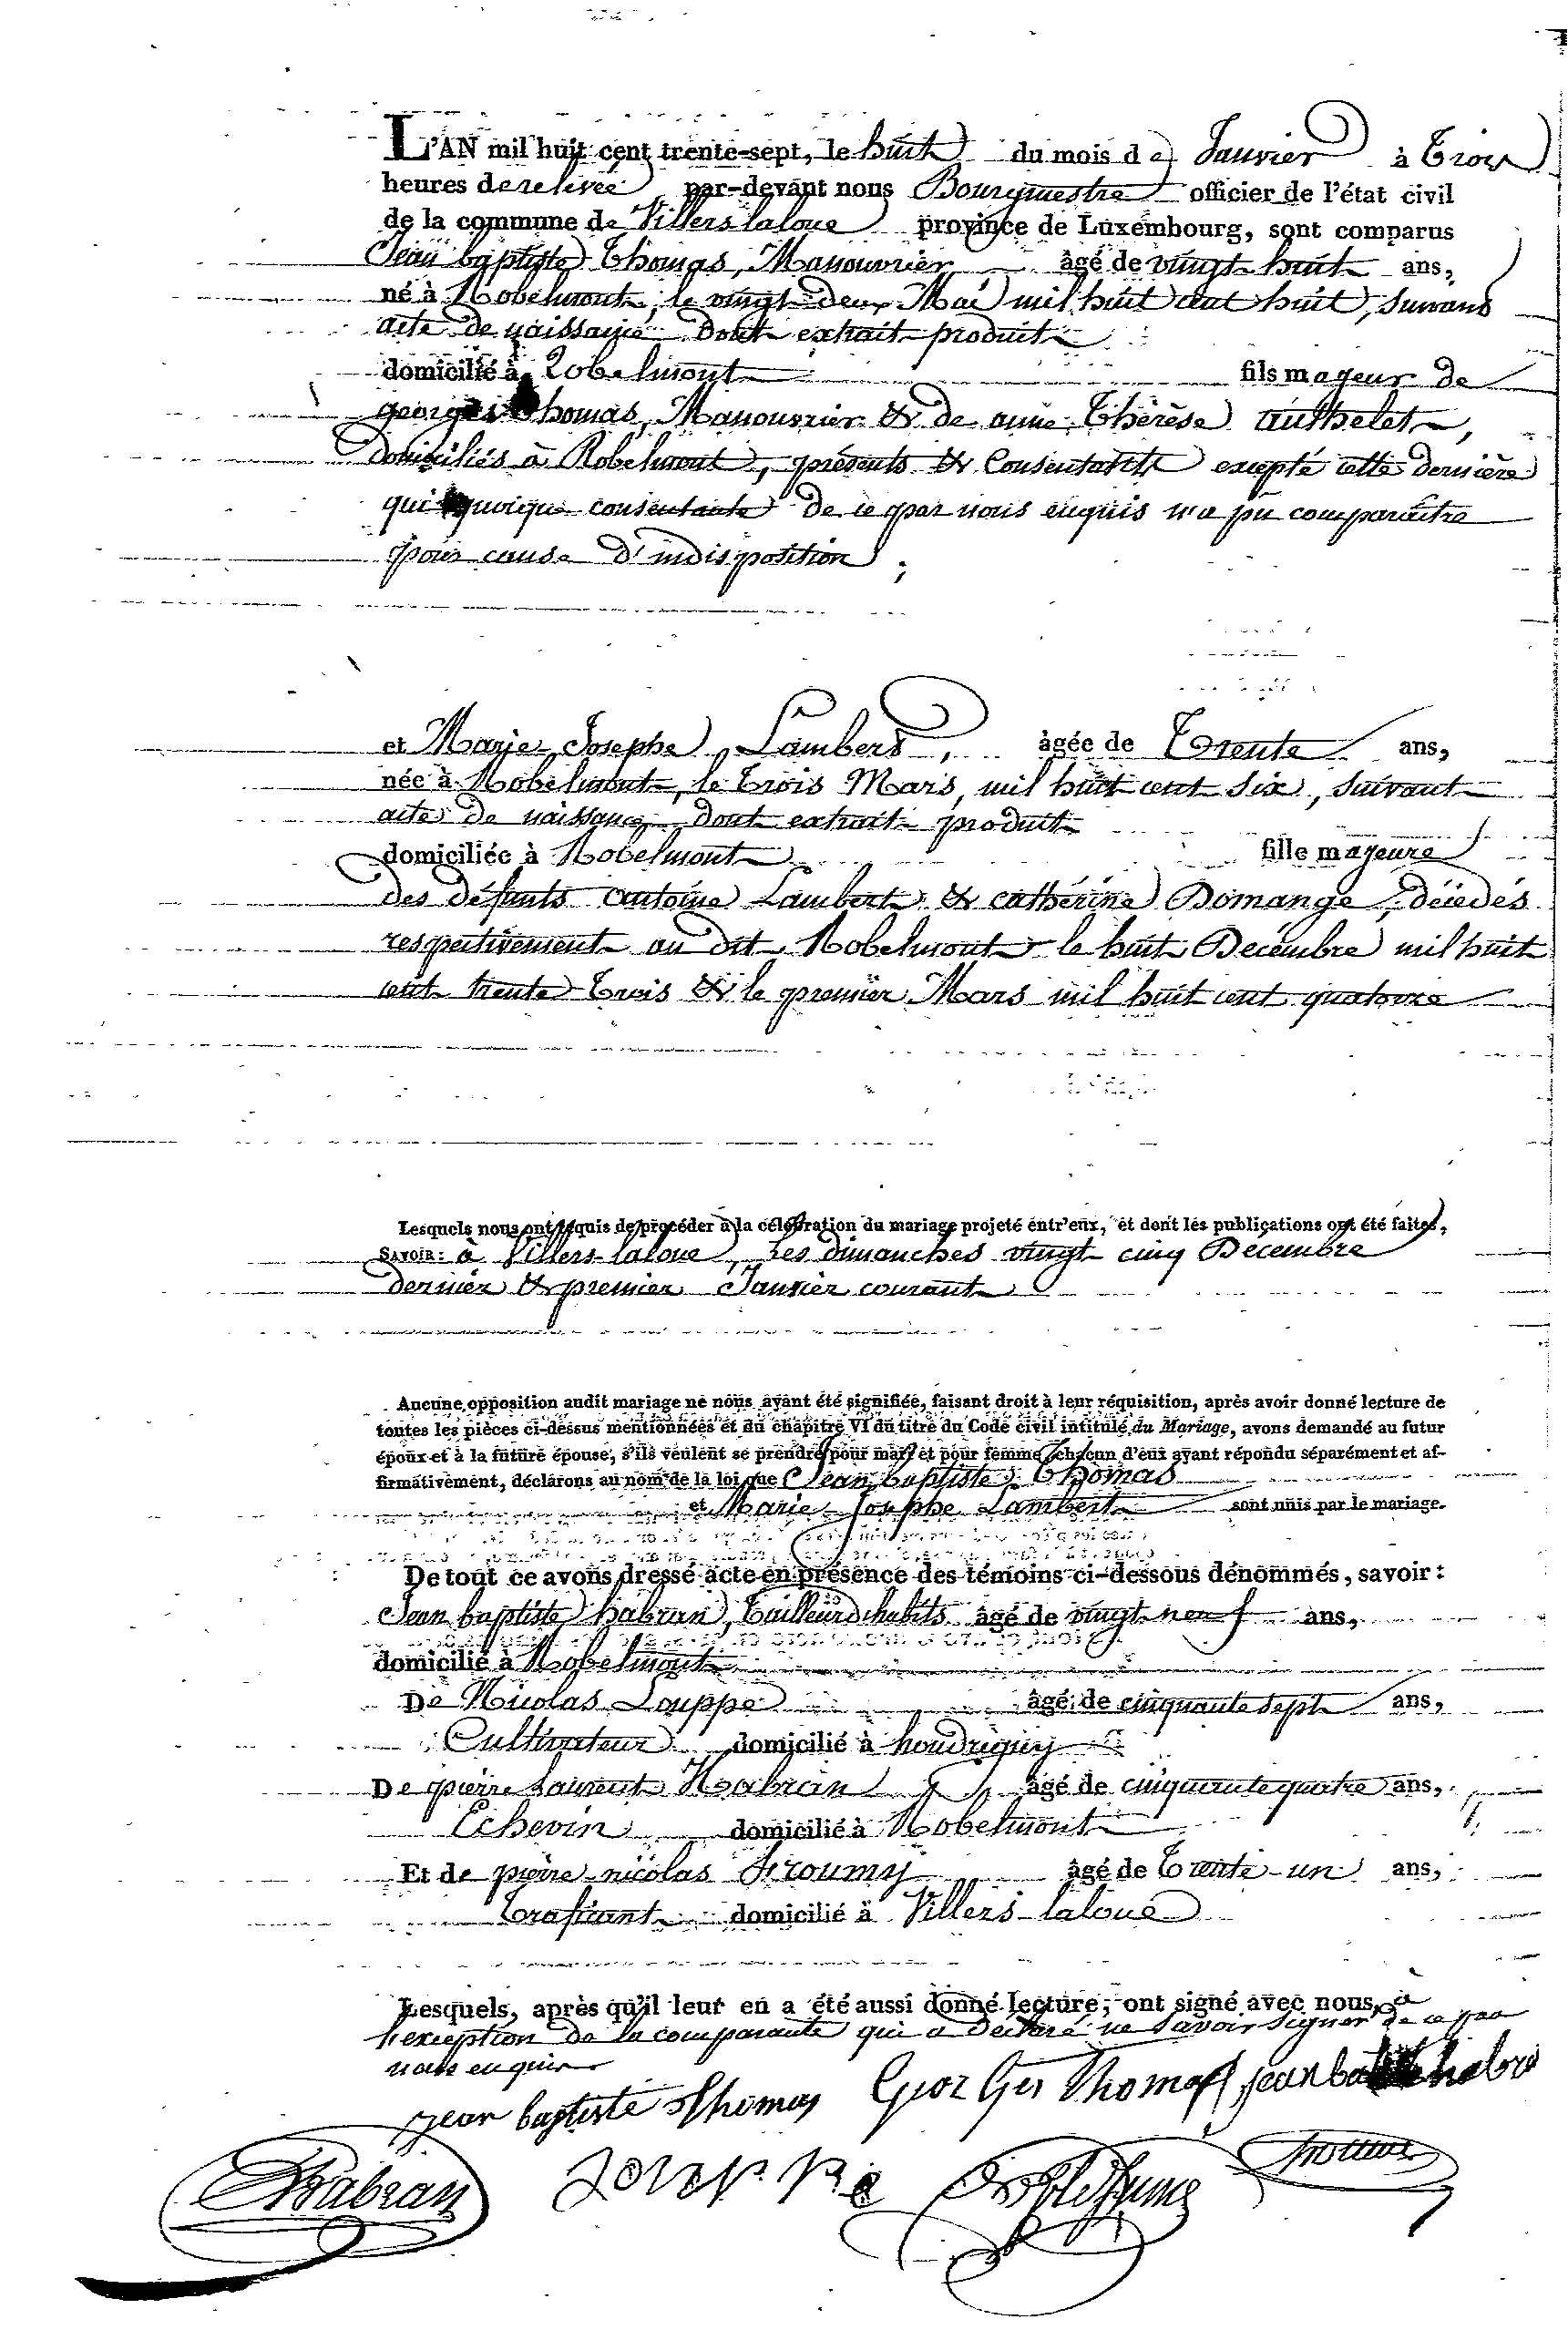 L'AN mil huit cent trente-sept, le huit du mois de Janvier à Trois
heures de relivée par-devant nous Bourgmestre officier de l'état civil
de la commune de Villers laloue province de Luxembourg, sont comparus
Jean baptiste Thomas, Manouvrier âgé de vingt huit ans,
né à Robelmont, le vingt deux Mai mil huit cent huit, suivant
acte de naissance dont extrait produit
domicilié à Robelmont fils mageur de
georges thomas, Manouvrier & de anne Thérèse authelet,
domiciliés à Robelmont, présents & Consentants excepté cette dernière
qui quoique consentante de ce par nous enquis n'a pu comparaître
pour cause d'indisposition ;
et Marie Josephe Lambert, âgée de Trente ans,
née à Robelmont, le Trois Mars, mil huit cent Six, suivant
acte de naissance dont extrait produit
domiciliée à Robelmont fille majeure
des défunts antoine Lambert & cathérine Domange, décédés
respectivement au dit Robelmont le huit Décembre mil huit
cent trente Trois & le premier Mars mil huit cent quatorze
Lesquels nous ont requis de procéder à la célébration du mariage projeté entr'eux, et dont les publications ont été faites,
SAVOIR : à Villers laloue, Les dimanches vingt cinq Décembre
dernier & premier Janvier courant
Aucune opposition audit mariage ne nous ayant été signifiée, faisant droit à leur réquisition, après avoir donné lecture de
toutes les pièces ci-dessus mentionnées et du chapitre VI du titre du Code civil intitulé du Mariage, avons demandé au futur
époux et à la future épouse, s'ils veulent se prendre pour mari et pour femme, chacun d'eux ayant répondu séparément et af-
firmativement, déclarons au nom de la loi que Jean baptiste Thomas
et Marie Josephe Lambert sont unis par le mariage.
De tout ce avons dressé acte en présence des témoins ci-dessous dénommés, savoir :
Jean baptiste habran, Tailleur d'habits âgé de vingt neuf ans,
domicilié à Robelmont
De Nicolas Louppe âgé de cinquante sept ans,
Cultivateur domicilié à houdrigny
De pierre Laurent Habran âgé de cinquante quatre ans,
Echevin domicilié à Robelmont
Et de pierre nicolas froumy âgé de Trente un ans,
Traficant domicilié à Villers laloue
Lesquels, après qu'il leur en a été aussi donné lecture, ont signé avec nous, à
l'exception de la comparante qui a déclaré ne savoir signer de ce par
nous enquise
jean baptiste thomas Georges Thomas jean
Habran Louppe